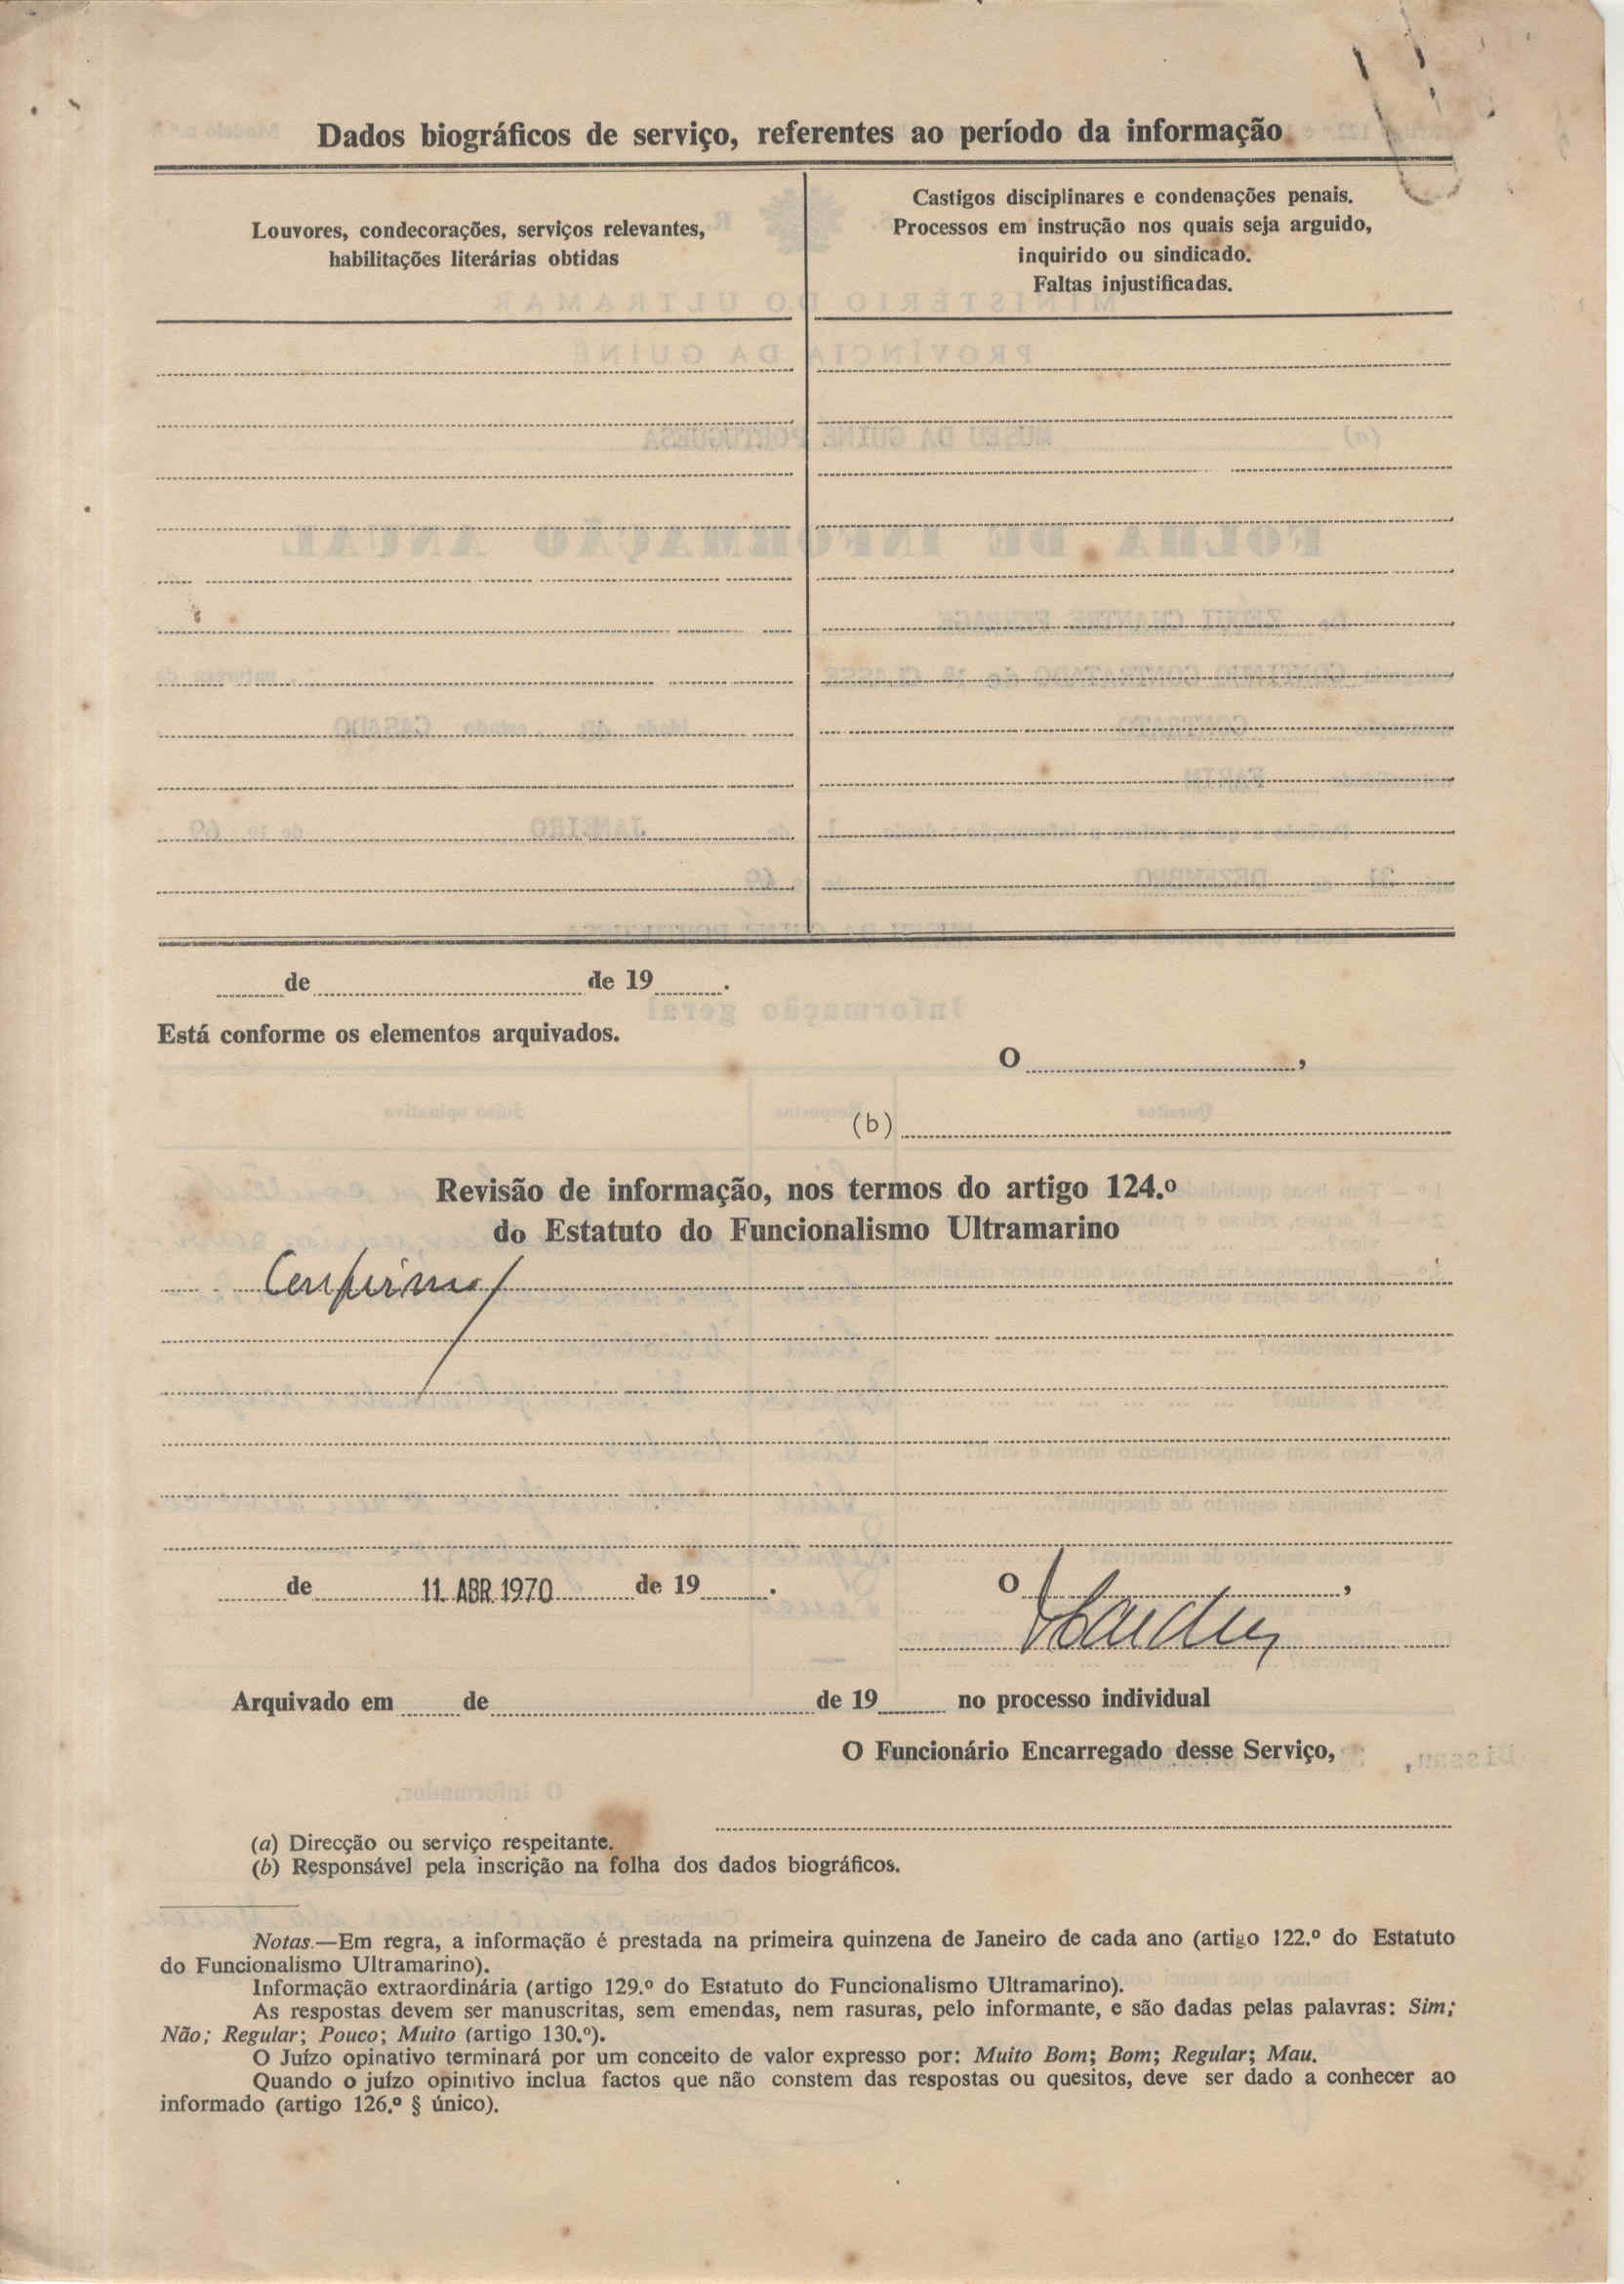 Dados biográficos de serviço, referentes ao período da informação
Louvores, condecorações, serviços relevantes,
habilitações literárias obtidas
Castigos disciplinares e condenações penais.
Processos em instrução nos quais seja arguido,
inquirido ou sindicado.
Faltas injustificadas.
de de 19 .
Está conforme os elementos arquivados.
O ,
(b)
Revisão de informação, nos termos do artigo 124.º
do Estatuto do Funcionalismo Ultramarino
Confirmo
de 11. ABR. 1970 de 19 .
O ,
Arquivado em de de 19 no processo individual
O Funcionário Encarregado desse Serviço,
(a) Direcção ou serviço respeitante.
(b) Responsável pela inscrição na folha dos dados biográficos.
Notas.—Em regra, a informação é prestada na primeira quinzena de Janeiro de cada ano (artigo 122.º do Estatuto
do Funcionalismo Ultramarino).
Informação extraordinária (artigo 129.º do Estatuto do Funcionalismo Ultramarino).
As respostas devem ser manuscritas, sem emendas, nem rasuras, pelo informante, e são dadas pelas palavras: Sim;
Não; Regular; Pouco; Muito (artigo 130.º).
O Juízo opinativo terminará por um conceito de valor expresso por: Muito Bom; Bom; Regular; Mau.
Quando o juízo opinitivo inclua factos que não constem das respostas ou quesitos, deve ser dado a conhecer ao
informado (artigo 126.º § único).